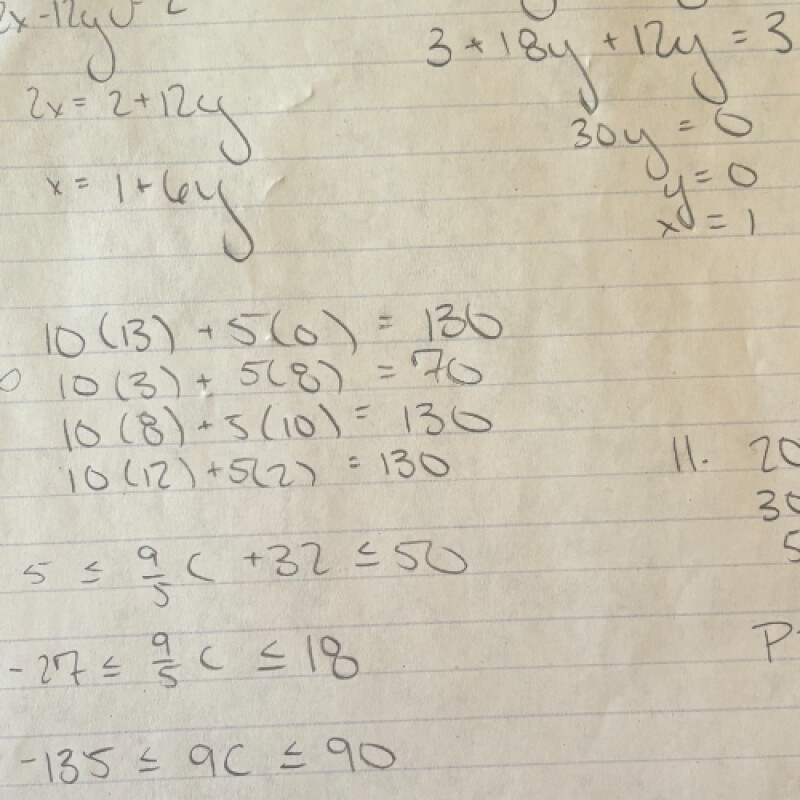 2x-12y = 2
2x = 2+12y
x = 1+6y
3 + 18y + 12y = 3
30y = 0
y = 0
x = 1
10(13) + 5(0) = 130
10(3) + 5(8) = 70
10(8) + 5(10) = 130
10(12) + 5(2) = 130
5 ≤ 9/5 C + 32 ≤ 50
-27 ≤ 9/5 C ≤ 18
-135 ≤ 9C ≤ 90
11. 20
30
5
P